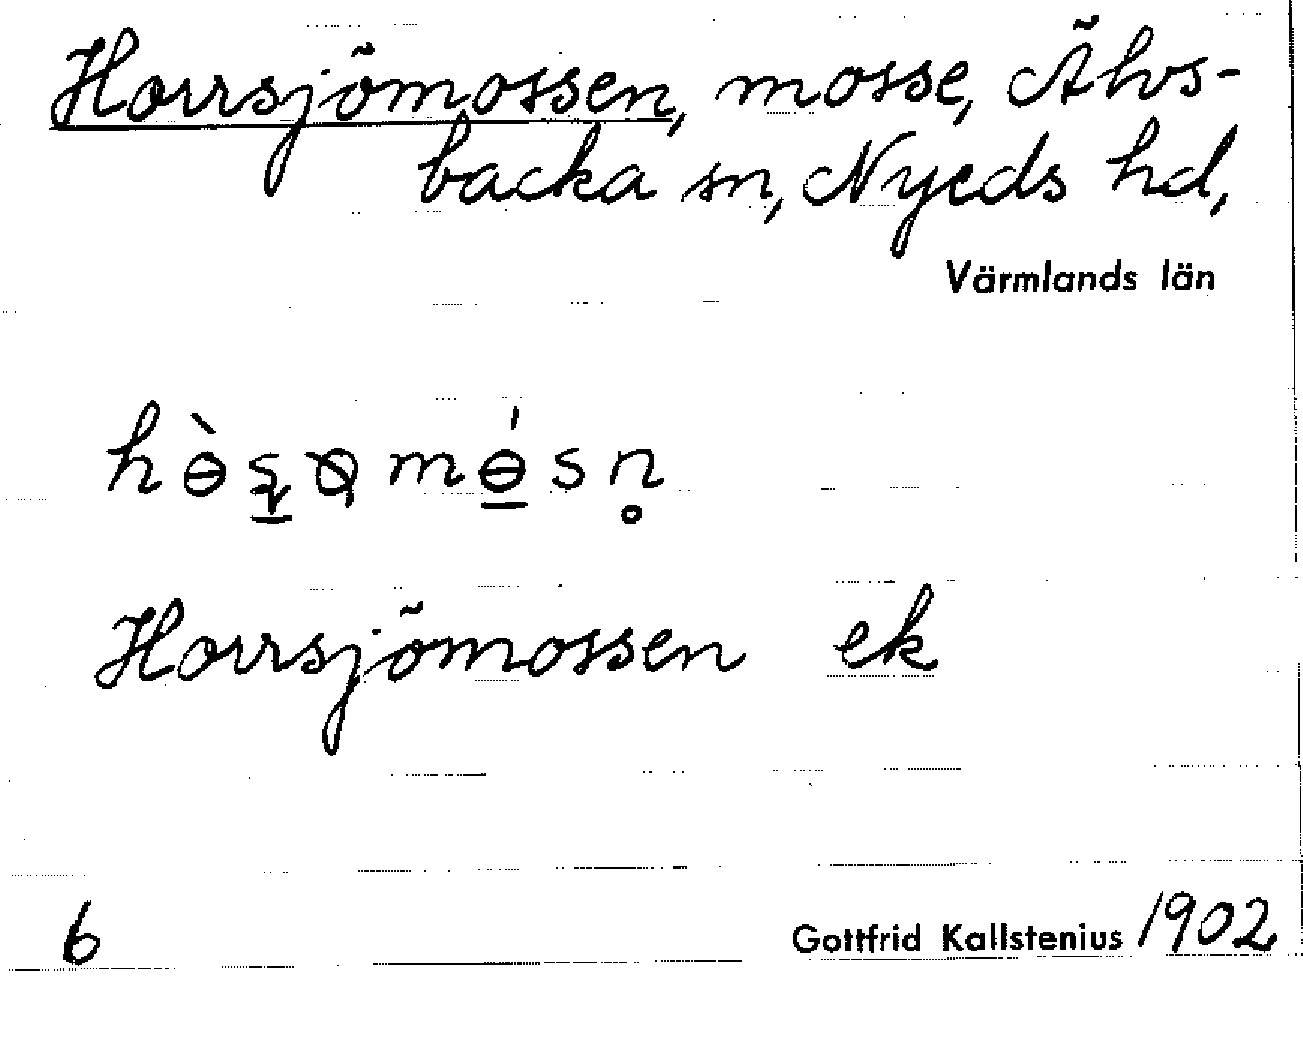 Horrsjömossen, mosse, Älvs-
backa sn, Nyeds hd,
Värmlands län
Horrsjömossen ek
6
Gottfrid Kallstenius 1902